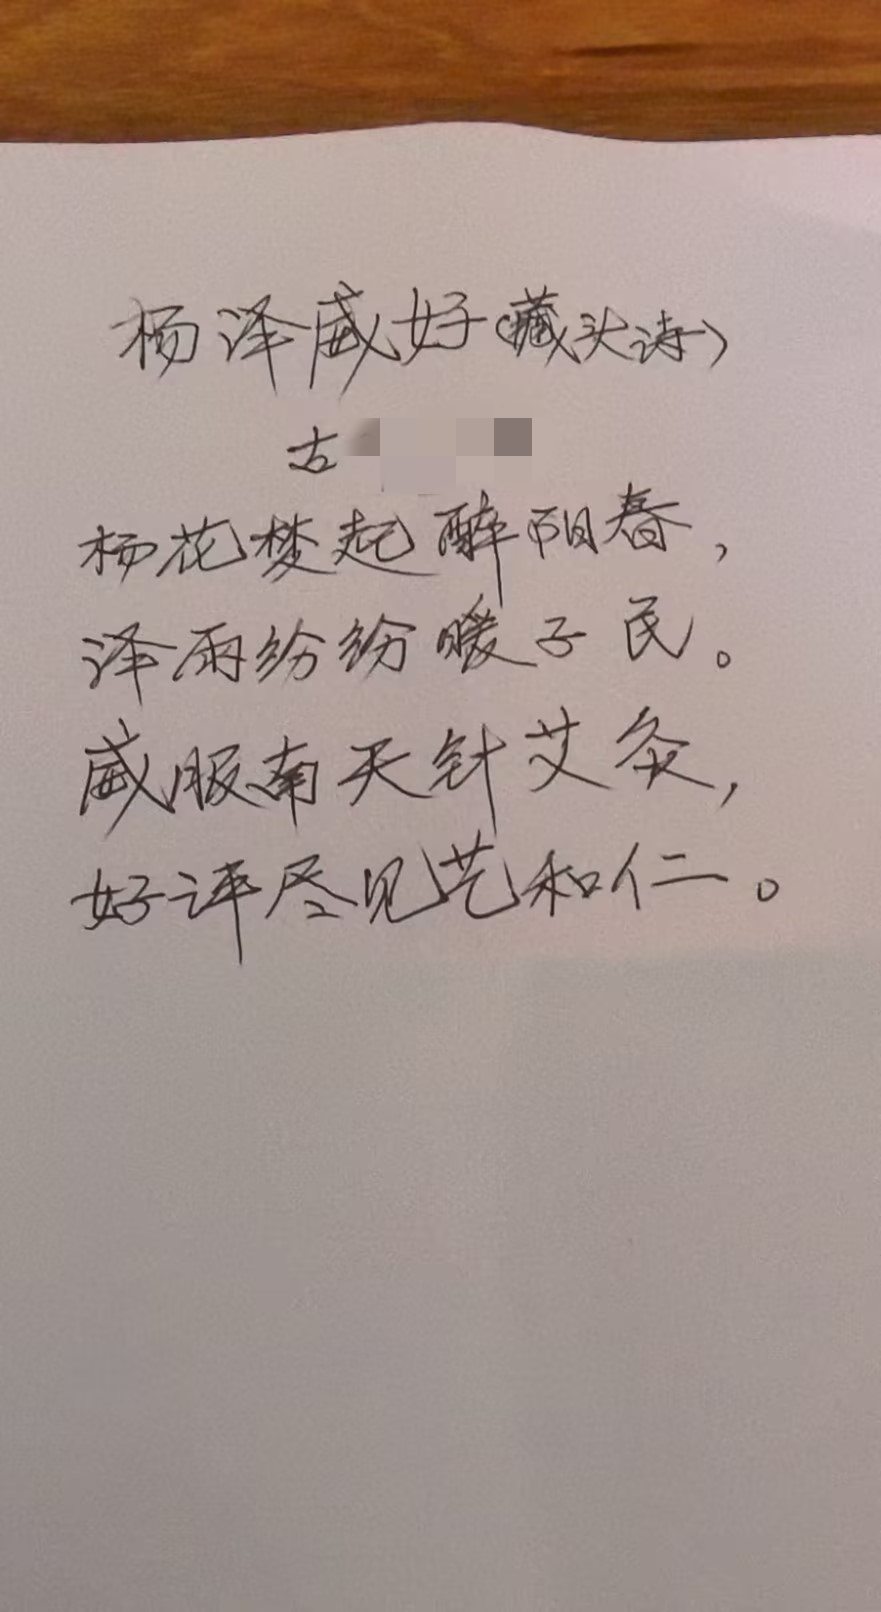 杨泽威好(藏头诗)
古
杨花梦起醉阳春，
泽雨纷纷暖子民。
威服南天针艾灸，
好评尽见艺和仁。